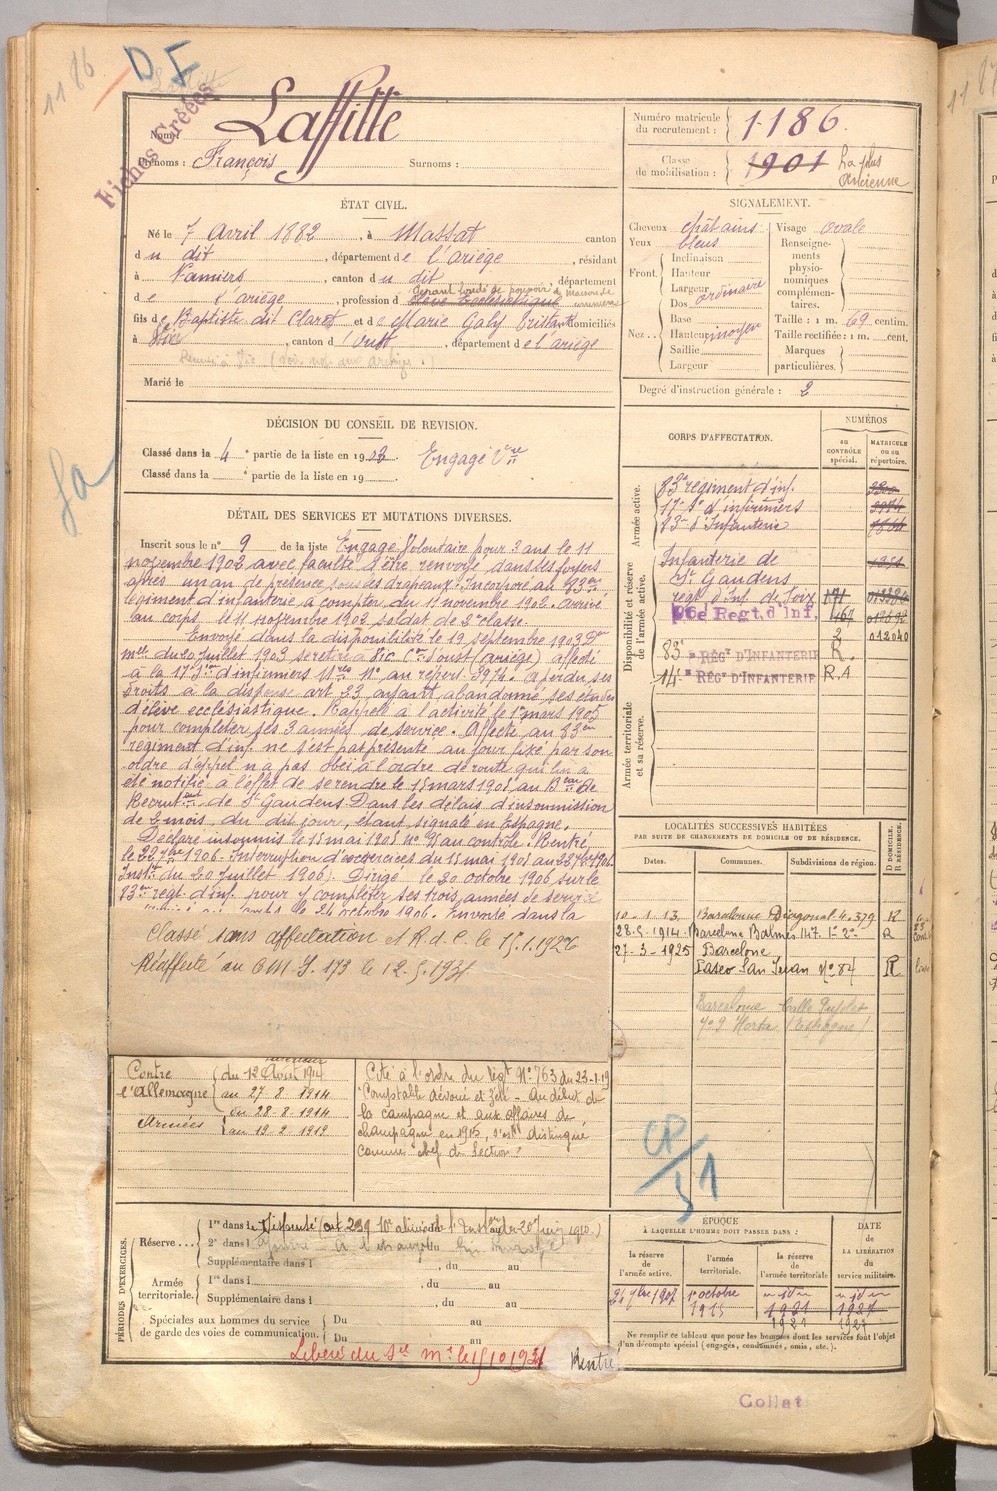 1186
D F
Fiches Créées
Nom : Laffitte
Prénoms : François Surnoms :
Numéro matricule du recrutement : 1186.
Classe de mobilisation : 1901 La plus Ancienne
ÉTAT CIVIL.
Né le 7 Avril 1882, à Massat canton
du dit, département de l'ariège, résidant
à Pamiers, canton du dit département
de l'ariège, profession d élève Ecclésiastique
gérant fondé de pouvoir de maison de
fils de Baptiste dit Claret et de Marie Galy Brittant domiciliés
à Vic, canton d'Oust, département de l'ariège
Marié le
SIGNALEMENT.
Cheveux châtains Visage ovale
Yeux bleus
Front. Inclinaison Hauteur Largeur
Dos ordinaire
Nez. Base Hauteur moyen Saillie Largeur
Renseignements physionomiques complémentaires.
Taille : 1 m. 69 centim.
Taille rectifiée : 1 m. cent.
Marques particulières.
Degré d'instruction générale : 2
DÉCISION DU CONSEIL DE REVISION.
Classé dans la 4e partie de la liste en 1903. Engagé Vre
Classé dans la e partie de la liste en 19
DÉTAIL DES SERVICES ET MUTATIONS DIVERSES.
Inscrit sous le n° 9 de la liste Engagé Volontaire pour 3 ans le 11
novembre 1902 avec faculté d'être renvoyé dans ses foyers
après un an de présence sous les drapeaux. Incorporé au 83eme
régiment d'infanterie à compter du 11 novembre 1902. arrivé
au corps le 11 novembre 1902 soldat de 2e classe.
Envoyé dans la disponibilité le 19 septembre 1903
du 20 juillet 1903 se retire à Vic Con d'oust (ariège) affecté
à la 17e Son d'infirmiers Mres N° au répert. 3974. a perdu ses
droits à la dispense art 23 ayant abandonné ses études
d'élève ecclésiastique. Rappelé à l'activité le 1er mars 1905
pour compléter ses 3 années de service. Affecté au 83eme
régiment d'inf. ne s'est pas présenté au jour fixé par son
ordre d'appel n'a pas obéi à l'ordre de route qui lui a
été notifié à l'effet de se rendre le 15 mars 1905 au Beau de
Recrutent de St Gaudens. Dans les délais d'insoumission
de 2 mois, du dit jour, étant signalé en Espagne.
Déclaré insoumis le 15 mai 1905 n° 9 au contrôle. Rentré
le 22 7bre 1906. Interruption de services du 15 mai 1905 au 22 7bre 1906
(Inston du 20 Juillet 1906). Dirigé le 20 octobre 1906 sur le
83eme régt d'inf. pour y compléter ses trois années de service
le 24 octobre 1906. Envoyé dans la
Classé sans affectation et R.d.C. le 15.1.1926
Réaffecté au C M I 173 le 12.5.1931
Contre l'Allemagne
du 12 Août 1914
au 27 - 8 - 1914
Armées
du 28 - 8 - 1914
au 19 - 2 - 1919
Cité à l'ordre du régt N° 763 du 23-1-19
"Comptable dévoué et zélé - au début de
la campagne et aux affaires de
champagne en 1915, s'est distingué
comme chef de section."
CORPS D'AFFECTATION.
NUMÉROS
au CONTRÔLE spécial.
MATRICULE ou au répertoire.
Armée active.
83e régiment d'inf.
17e Son d'infirmiers 3974
83e d'Infanterie
Disponibilité et réserve de l'armée active.
Infanterie de St Gaudens
régt d'Inf. de Foix 171
96e Regt. d'Inf. 467
2 012040
83e RÉGt D'INFANTERIE R.
14e RÉGt D'INFANTERIE R.A
Armée territoriale et sa réserve.
LOCALITÉS SUCCESSIVES HABITÉES
PAR SUITE DE CHANGEMENTS DE DOMICILE OU DE RÉSIDENCE.
Dates. Communes. Subdivisions de région. D DOMICILE. R RÉSIDENCE.
10-1-13 Barcelonne Diagonal 4. 379 R
28.5.1914. Barcelone Balmes 147. 1° 2a R
27-3-1925 Barcelone
Paseo San Juan N° 84 R
Barcelone Calle
Horta (Espagne)
CP/51
PÉRIODES D'EXERCICES.
Réserve... 1re dans le Dispensé (art 239 10e alinéa de l'Inston du 20 Juin 1910.)
2e dans l
Supplémentaire dans l , du au
Armée territoriale. 1re dans l , du au
Supplémentaire dans l , du au
Spéciales aux hommes du service de garde des voies de communication. Du au
Du au
Libéré du Sce Mre le 15 10 1931 Rentré
ÉPOQUE
À LAQUELLE L'HOMME DOIT PASSER DANS :
la réserve de l'armée active.
l'armée territoriale.
la réserve de l'armée territoriale.
DATE DE LA LIBÉRATION du service militaire.
1er octobre 1915
1921
1927
Ne remplir ce tableau que pour les hommes dont les services font l'objet d'un décompte spécial (engagés, condamnés, omis, etc.).
Collat